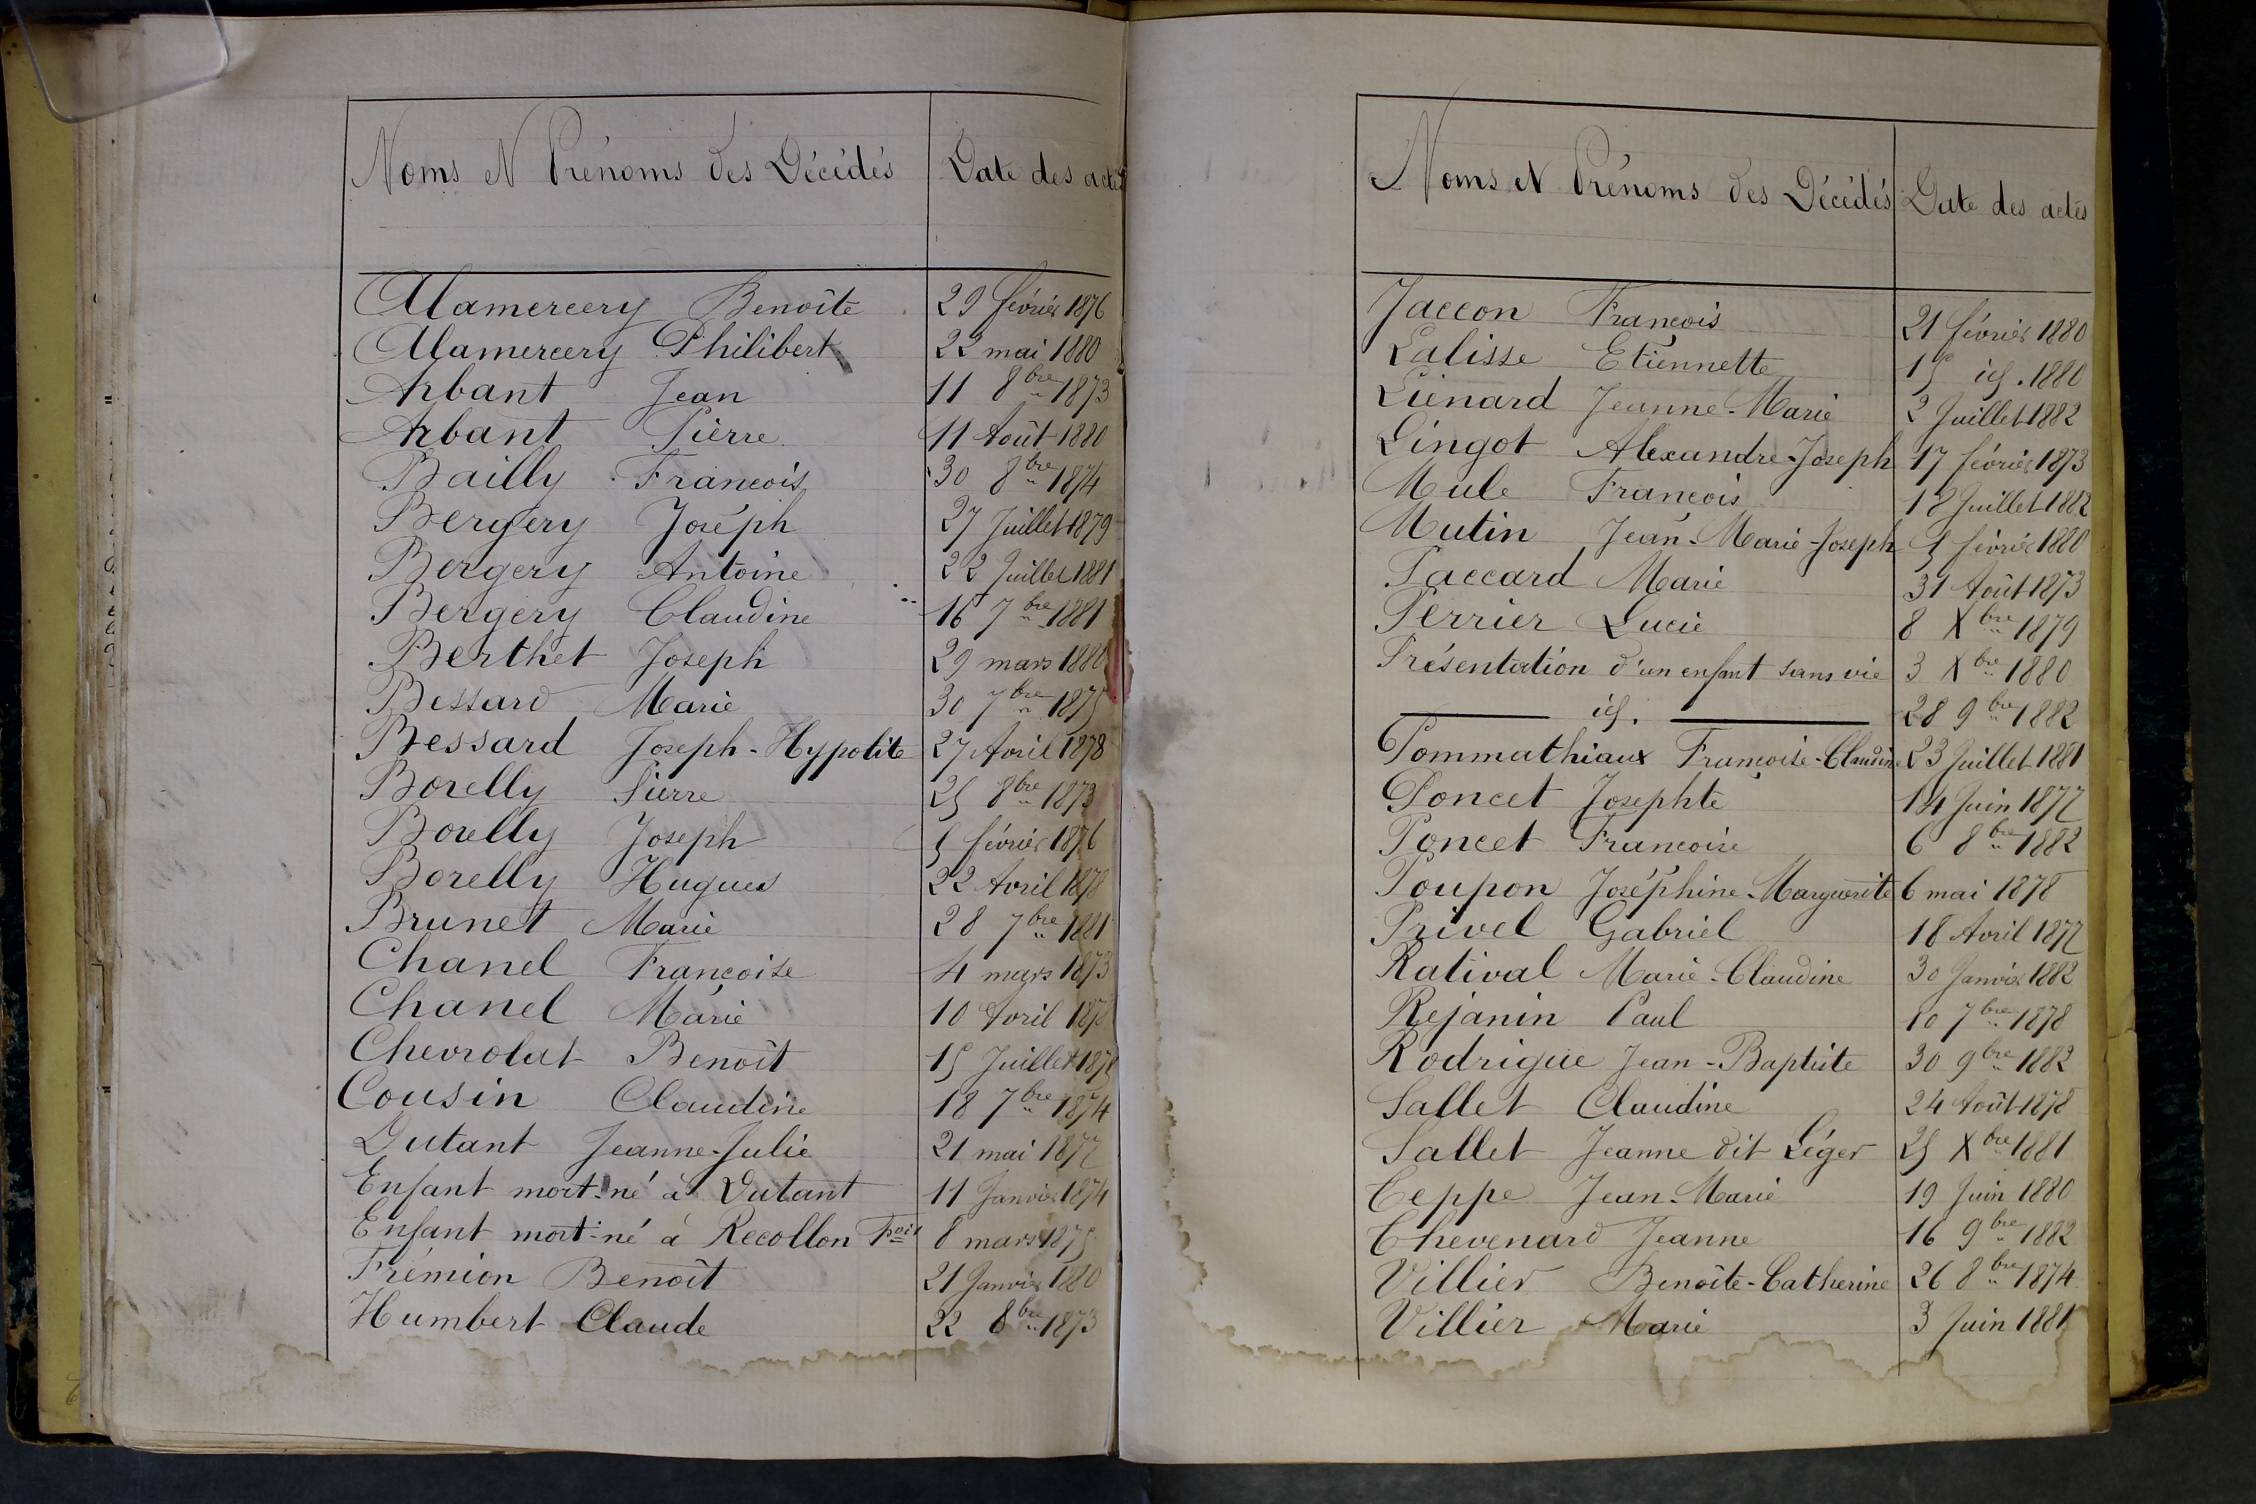 Noms et Prénoms des Décédés Date des actes
Alamercery Benoîte 29 février 1876
Alamercery Philibert 22 mai 1880
Arbant Jean 11 8bre 1873
Arbant Pierre 11 Août 1880
Bailly François 30 8bre 1874
Bergery Joseph 27 Juillet 1879
Bergery Antoine 22 Juillet 1881
Bergery Claudine 16 7bre 1881
Berthet Joseph 29 mars 1880
Bessard Marie 30 7bre 1875
Bessard Joseph-Hypolite 27 Avril 1878
Borelly Pierre 25 8bre 1873
Borelly Joseph 5 février 1876
Borelly Hugues 22 Avril 1878
Brunet Marie 28 7bre 1881
Chanel Françoise 4 mars 1873
Chanel Marie 10 Avril
Chevrolat Benoît 15 Juillet
Cousin Claudine 18 7bre 1874
Dutant Jeanne-Julie 21 mai 1877
Enfant mort-né à Dutant 11 Janvier 1874
Enfant mort-né à Recollon Fois 8 mars 1875
Frémion Benoît 21 Janvier 1880
Humbert Claude 22 8bre 1873
Noms et Prénoms des Décédés Date des actes
Jaccon François 21 février 1880
Lalisse Etiennette 15 id. 1880
Liénard Jeanne-Marie 2 Juillet 1882
Lingot Alexandre-Joseph 17 février 1873
Mule François 12 Juillet 1882
Mutin Jean-Marie-Joseph 5 février 1880
Paccard Marie 31 Août 1873
Perrier Lucie 8 Xbre 1879
Présentation d'un enfant sans vie 3 Xbre 1880
id. 28 9bre 1882
Pommathiaux Françoise-Claudine 23 Juillet 1881
Poncet Josephte 14 Juin 1877
Poncet Françoise 6 8bre 1882
Poupon Joséphine-Marguerite 6 mai 1878
Privel Gabriel 18 Avril 1877
Ratival Marie-Claudine 30 Janvier 1882
Rejanin Paul 10 7bre 1878
Rodrigue Jean-Baptiste 30 9bre 1882
Sallet Claudine 24 Août 1878
Sallet Jeanne dit Léger 25 Xbre 1881
Ceppe Jean-Marie 19 Juin 1880
Thevenard Jeanne 16 9bre 1882
Villier Benoîte-Catherine 26 8bre 1874
Villier Marie 3 Juin 1881